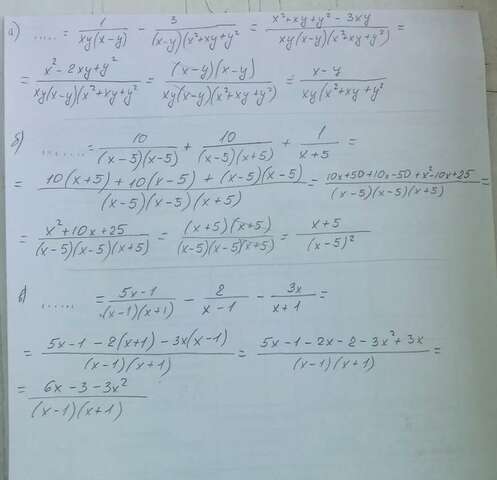 а) ..... = 1/(xy(x-y)) - 3/((x-y)(x²+xy+y²) = (x²+xy+y² - 3xy)/(xy(x-y)(x²+xy+y²)) =
= (x² - 2xy + y²)/(xy(x-y)(x²+xy+y²) = ((x-y)(x-y))/(xy(x-y)(x²+xy+y²)) = (x-y)/(xy(x²+xy+y²
б) ....... = 10/((x-5)(x-5)) + 10/((x-5)(x+5)) + 1/(x+5) =
= (10(x+5) + 10(x-5) + (x-5)(x-5))/((x-5)(x-5)(x+5)) = (10x+50+10x-50+x²-10x+25)/((x-5)(x-5)(x+5)) =
= (x²+10x+25)/((x-5)(x-5)(x+5)) = ((x+5)(x+5))/((x-5)(x-5)(x+5)) = (x+5)/(x-5)²
в) ..... = (5x-1)/((x-1)(x+1)) - 2/(x-1) - 3x/(x+1) =
= (5x-1-2(x+1)-3x(x-1))/((x-1)(x+1)) = (5x-1-2x-2-3x²+3x)/((x-1)(x+1)) =
= (6x-3-3x²)/((x-1)(x+1))